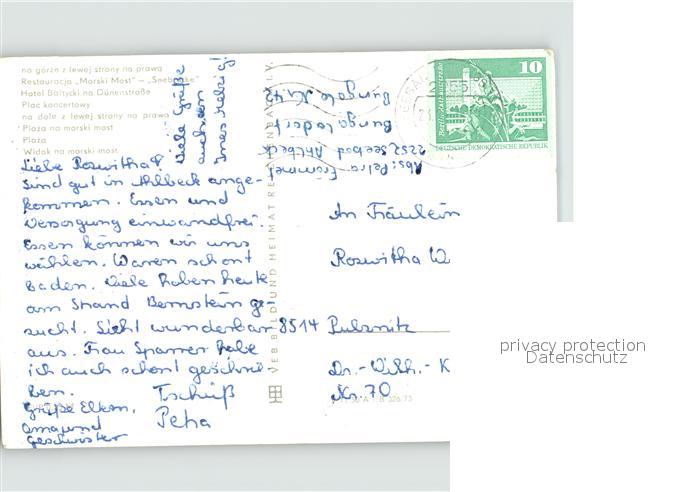 na górze z lewej strony na prawa
Restauracja „Morski Most" – „Seebrücke"
Hotel Bałtycki na Dünenstraße
Plac koncertowy
na dole z lewej strony na prawa
Plaża na morski most
Plaża
Widok na morski most
Liebe Roswitha!
Sind gut in Ahlbeck ange-
kommen. Essen und
Versorgung einwandfrei.
Essen können wir uns
wählen. Waren schon
baden. Viele haben heute
am Strand Bernstein ge-
sucht. Sieht wunderbar
aus. Frau Sparrer habe
ich auch schon geschrie-
ben.
Tschüß
Grüße Eltern,
Oma und
Geschwister
Viele Grüße
auch von
Ines
Abs.: Petra
2252 Seebad Ahlbeck
VEB BILD UND HEIMAT REICHENBACH I. V.
10
DEUTSCHE DEMOKRATISCHE REPUBLIK
An Fräulein
Roswitha W
8514 Pulsnitz
Dr.-Wilh.-K
Nr. 70
privacy protection
Datenschutz